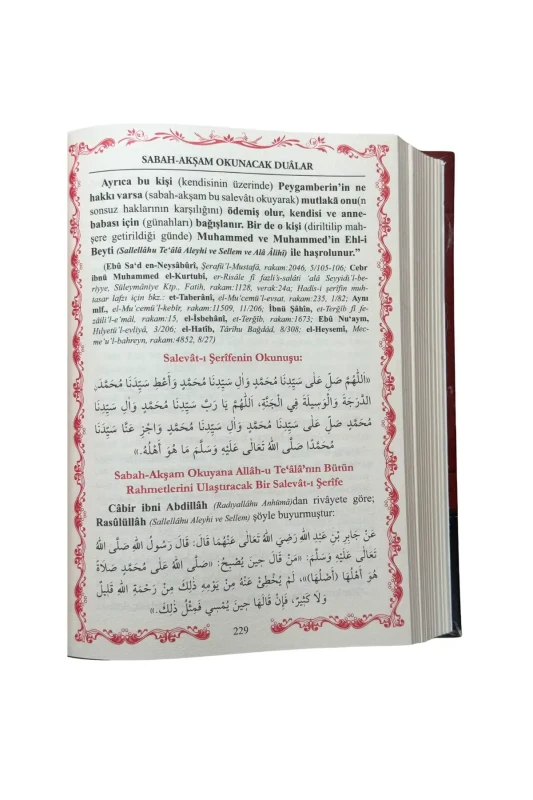 SABAH-AKŞAM OKUNACAK DUÂLAR
Ayrıca bu kişi (kendisinin üzerinde) Peygamberin'in ne
hakkı varsa (sabah-akşam bu salevâtı okuyarak) mutlakâ onu(n
sonsuz haklarının karşılığını) ödemiş olur, kendisi ve anne-
babası için (günahları) bağışlanır. Bir de o kişi (diriltilip mah-
şere getirildiği günde) Muhammed ve Muhammed'in Ehl-i
Beyti (Sallellâhu Te'âlâ Aleyhi ve Sellem ve Alâ Âlihî) ile haşrolunur."
(Ebû Sa'd en-Neysâbûrî, Şerafü'l-Mustafâ, rakam:2046, 5/105-106; Cebr
ibnü Muhammed el-Kurtubî, er-Risâle fî fazli's-salâti 'alâ Seyyidi'l-be-
riyye, Süleymâniye Ktp., Fatih, rakam:1128, verak:24a; Hadîs-i şerîfin muh-
tasar lafzı için bkz.: et-Taberânî, el-Mu'cemü'l-evsat, rakam:235, 1/82; Aynı
mlf., el-Mu'cemü'l-kebîr, rakam:11509, 11/206; İbnü Şâhîn, et-Terğîb fî fe-
zâili'l-e'mâl, rakam:15; el-İsbehânî, et-Terğîb, rakam:1673; Ebû Nu'aym,
Hılyetü'l-evliyâ, 3/206; el-Hatîb, Târîhu Bağdâd, 8/308; el-Heysemî, Mec-
me'u'l-bahreyn, rakam:4852, 8/27)
Salevât-ı Şerîfenin Okunuşu:
«اَللّٰهُمَّ صَلِّ عَلٰى سَيِّدِنَا مُحَمَّدٍ وَاٰلِ سَيِّدِنَا مُحَمَّدٍ وَأَعْطِ سَيِّدَنَا مُحَمَّدًا
الدَّرَجَةَ وَالْوَسِيلَةَ فِي الْجَنَّةِ، اَللّٰهُمَّ يَا رَبَّ سَيِّدِنَا مُحَمَّدٍ وَاٰلِ سَيِّدِنَا
مُحَمَّدٍ صَلِّ عَلٰى سَيِّدِنَا مُحَمَّدٍ وَاٰلِ سَيِّدِنَا مُحَمَّدٍ وَاجْزِ عَنَّا سَيِّدَنَا
مُحَمَّدًا صَلَّى اللّٰهُ تَعَالٰى عَلَيْهِ وَسَلَّمَ مَا هُوَ أَهْلُهُ.»
Sabah-Akşam Okuyana Allâh-u Te'âlâ'nın Bütün
Rahmetlerini Ulaştıracak Bir Salevât-ı Şerîfe
Câbir ibni Abdillâh (Radıyallâhu Anhümâ)dan rivâyete göre;
Rasûlüllâh (Sallellâhu Aleyhi ve Sellem) şöyle buyurmuştur:
عَنْ جَابِرِ بْنِ عَبْدِ اللّٰهِ رَضِيَ اللّٰهُ تَعَالٰى عَنْهُمَا قَالَ: قَالَ رَسُولُ اللّٰهِ صَلَّى اللّٰهُ
تَعَالٰى عَلَيْهِ وَسَلَّمَ: «مَنْ قَالَ حِينَ يُصْبِحُ: «صَلَّى اللّٰهُ عَلٰى مُحَمَّدٍ صَلَاةً
هُوَ أَهْلُهَا (أَصْلُهَا)»، لَمْ يُخْطِئْ عَنْهُ مِنْ يَوْمِهِ ذٰلِكَ مِنْ رَحْمَةِ اللّٰهِ قَلِيلٌ
وَلَا كَثِيرٌ، فَإِنْ قَالَهَا حِينَ يُمْسِي فَمِثْلُ ذٰلِكَ.»
229